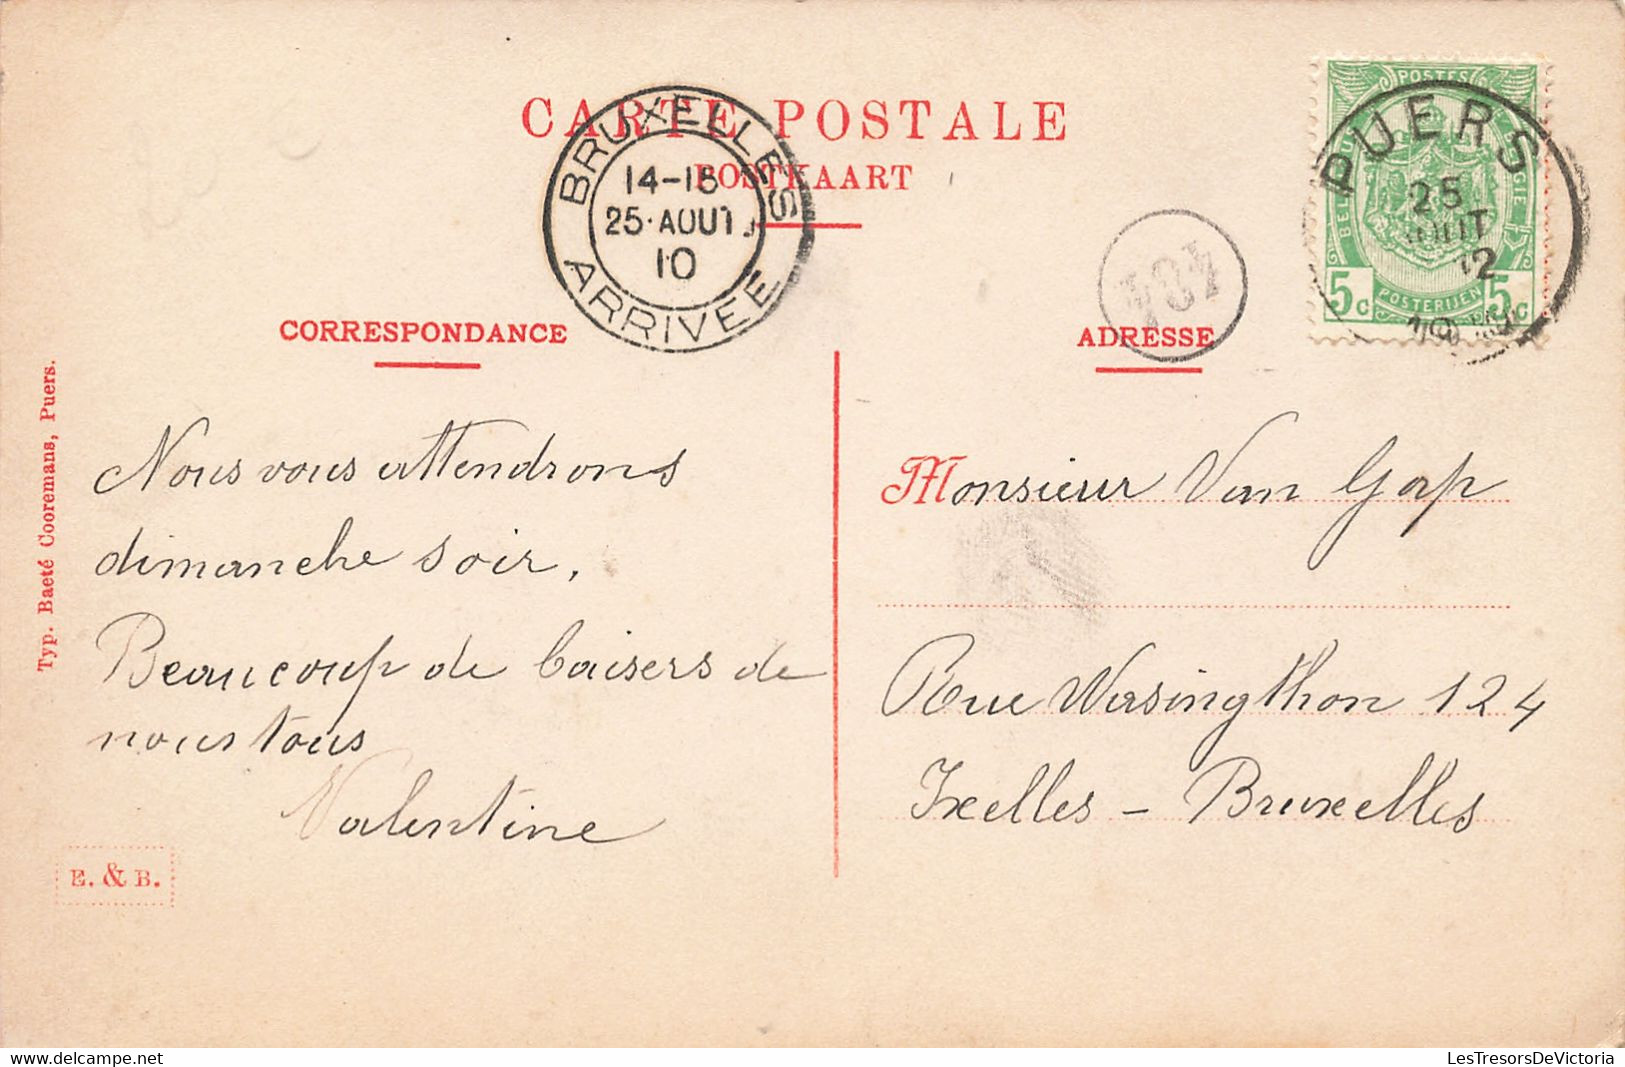 CARTE POSTALE
POSTKAART
BRUXELLES
14-15
25·AOUT
10
ARRIVEE
POSTES
BELGIE
POSTERIJEN
5c 5c
PUERS
25
AOUT
12
CORRESPONDANCE
ADRESSE
Typ. Baeté Cooremans, Puers.
Nous vous attendrons
dimanche soir,
Beaucoup de baisers de
nous tous
Valentine
E. & B.
Monsieur Van Gorp
Rue Wasingthon 124
Ixelles – Bruxelles
LesTresorsDeVictoria